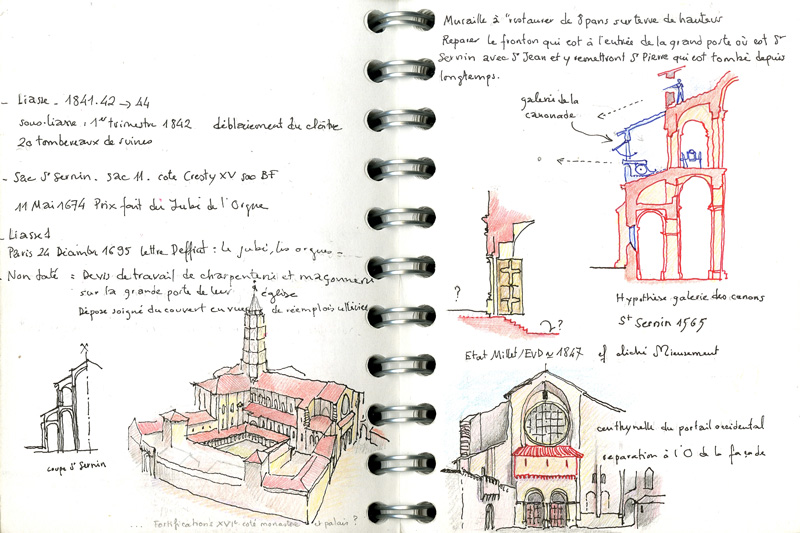 - Liasse - 1841.42 → 44
sous-liasse : 1er trimestre 1842 déblaiement du cloître
20 tombereaux de ruines
- Sac St Sernin. Sac 11. cote Cresty XV 500 BF
11 Mai 1674 Prix fait du Jubé de l'Orgue
- Liasse 1
Paris 24 Décembre 1695 lettre Deffiat : le jubé, les orgues -
- Non daté = Devis de travail de charpenterie et maçonnerie
sur la grande porte de leur église
Dépose soigné du couvert en vue de réemplois
coupe St Sernin
... Fortifications XVIe coté monastère et palais ?
Muraille à "restaurer de 8 pans sur de hauteur
Reparer le fronton qui est à l'entrée de la grand porte où est St
Sernin avec St Jean et y remettront St Pierre qui est tombé depuis
longtemps.
galerie de la
canonade
?
?
Hypothèse galerie des canons
St Sernin 1565
Etat Millet/EVD ~ 1847 cf cliché Mieusement
du portail occidental
reparation à l'O de la façade